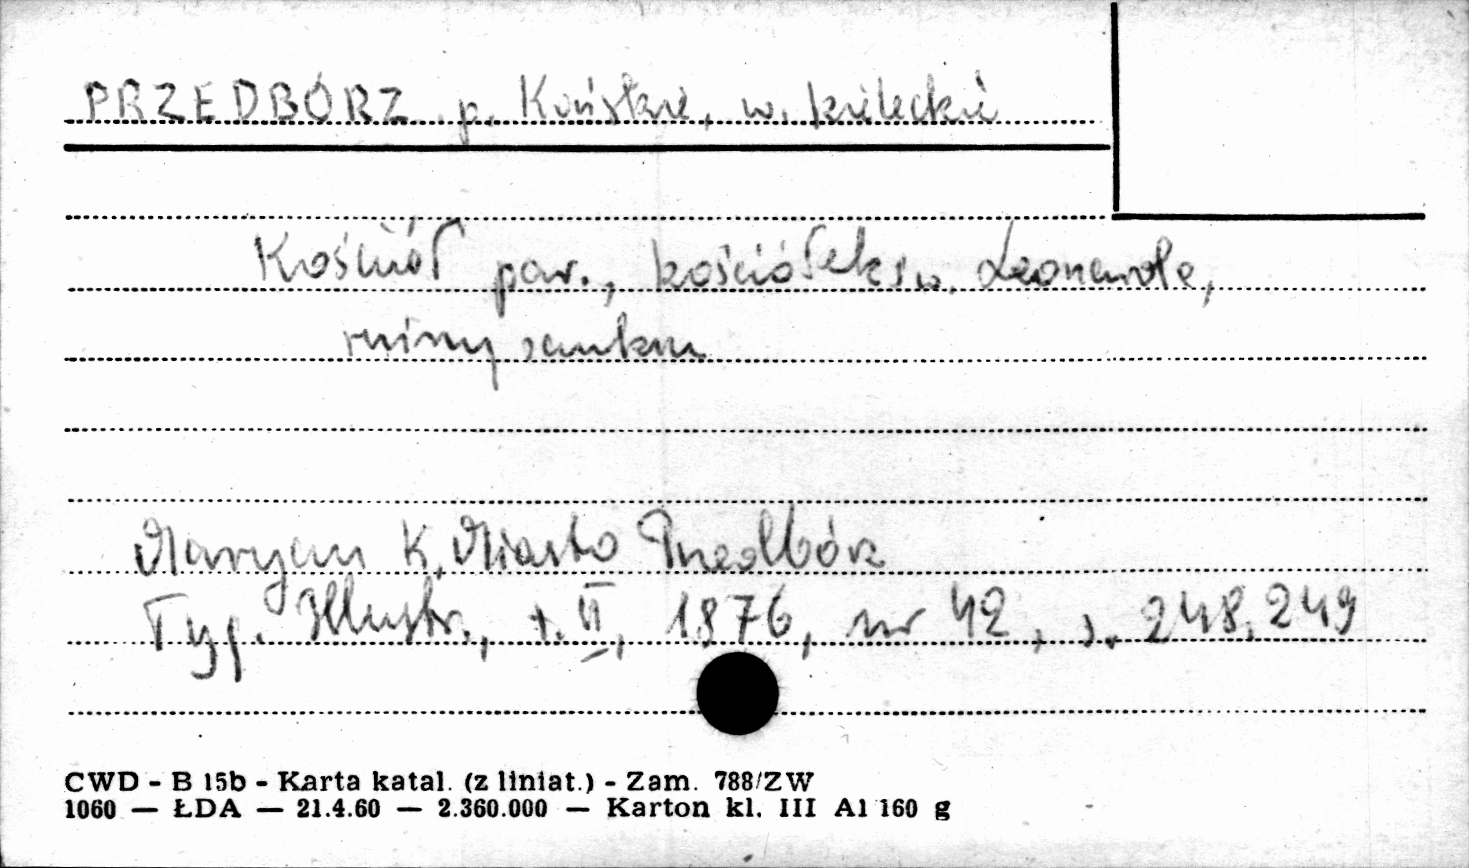 PRZEDBÓRZ p. Końskie, w. kieleckie
Kościół par., kościółek św. Leonarda,
ruiny zamku
Maryan K. Miasto Przedbórz
Tyg. Illustr., t. II, 1876, nr 42, s. 248, 249
CWD - B 15b - Karta katal. (z liniat.) - Zam. 788/ZW
1060 — ŁDA — 21.4.60 — 2.360.000 — Karton kl. III A1 160 g